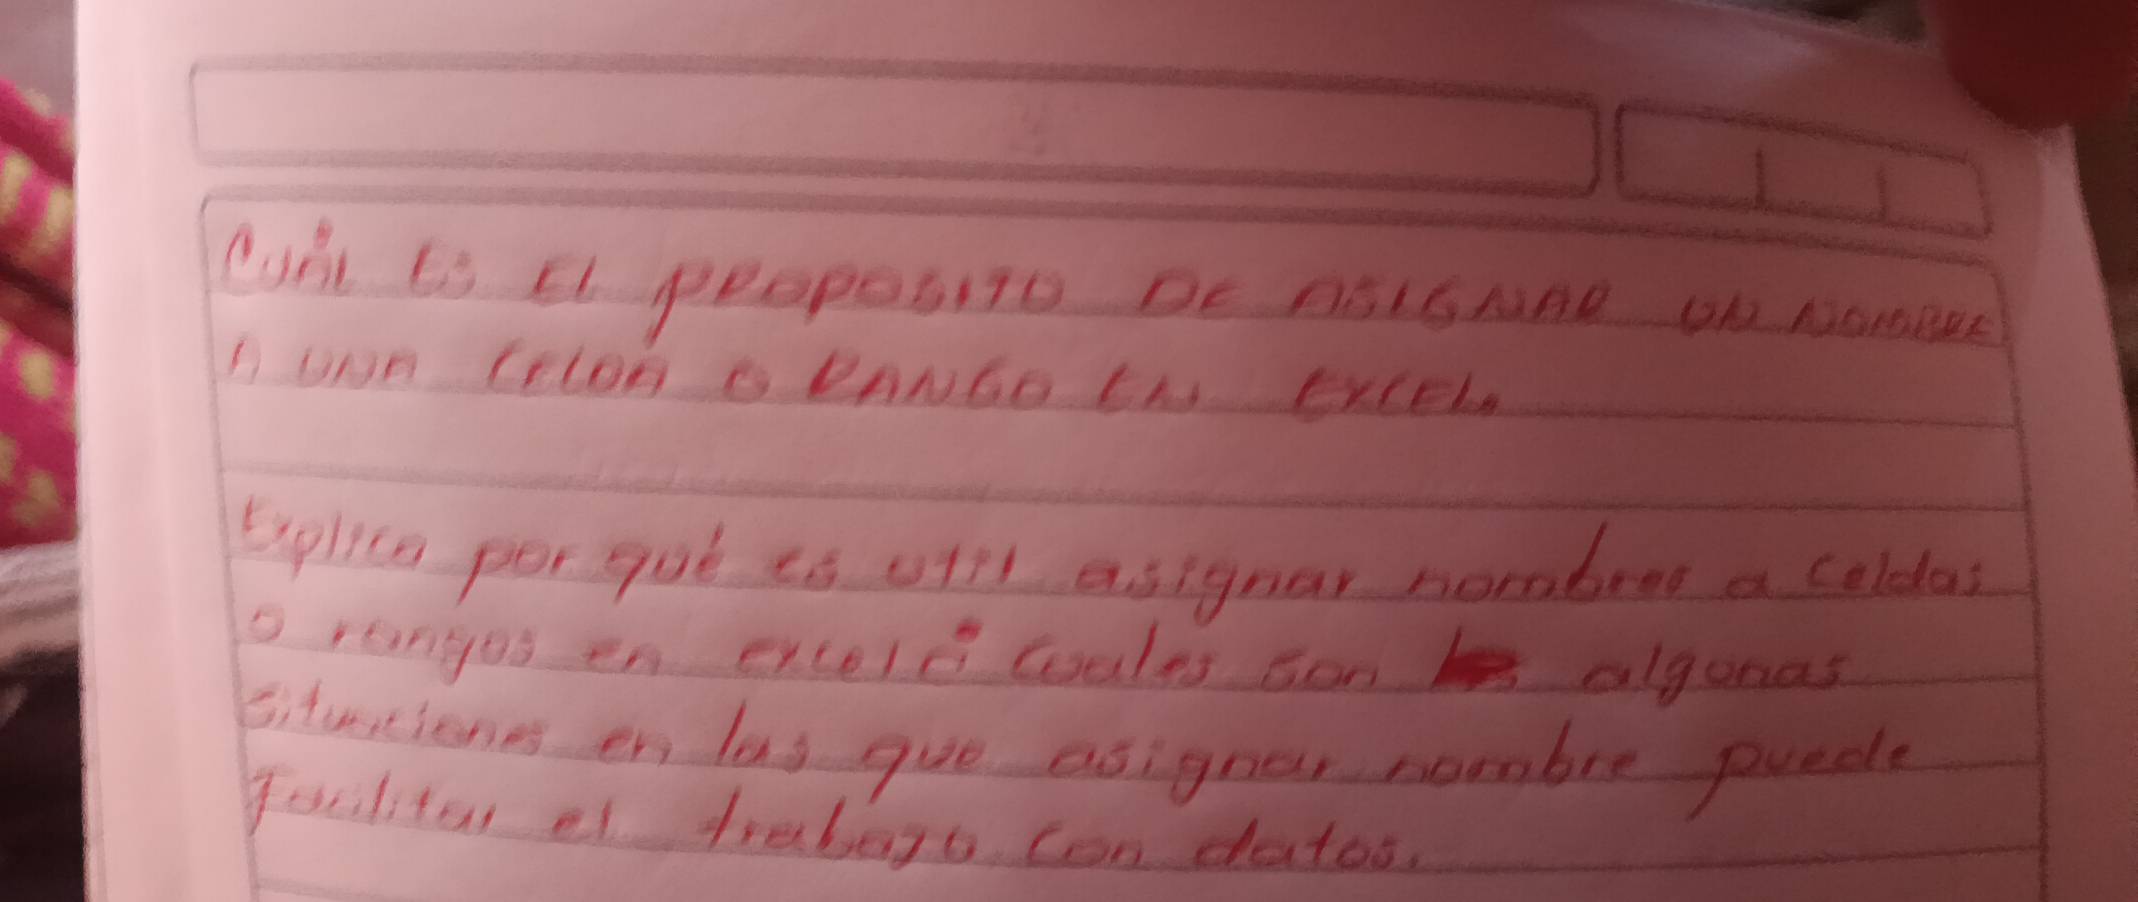 CUÁL ES EL PROPOSITO DE ASIGNAR UN NOMBRE
A UNA CELDA O RANGO EN EXCEL.
Explica por qué es util asignar nombres a celdas
o rangos en excel ¿ cuales son algunas
situaciones en las que asignar nombre puede
facilitar el trabajo con datos.